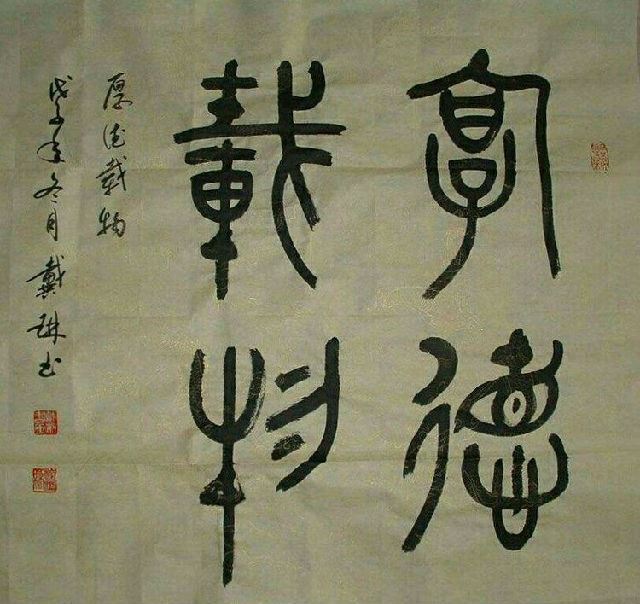 厚德
載物
厚德載物
戊子年冬月戴琳书